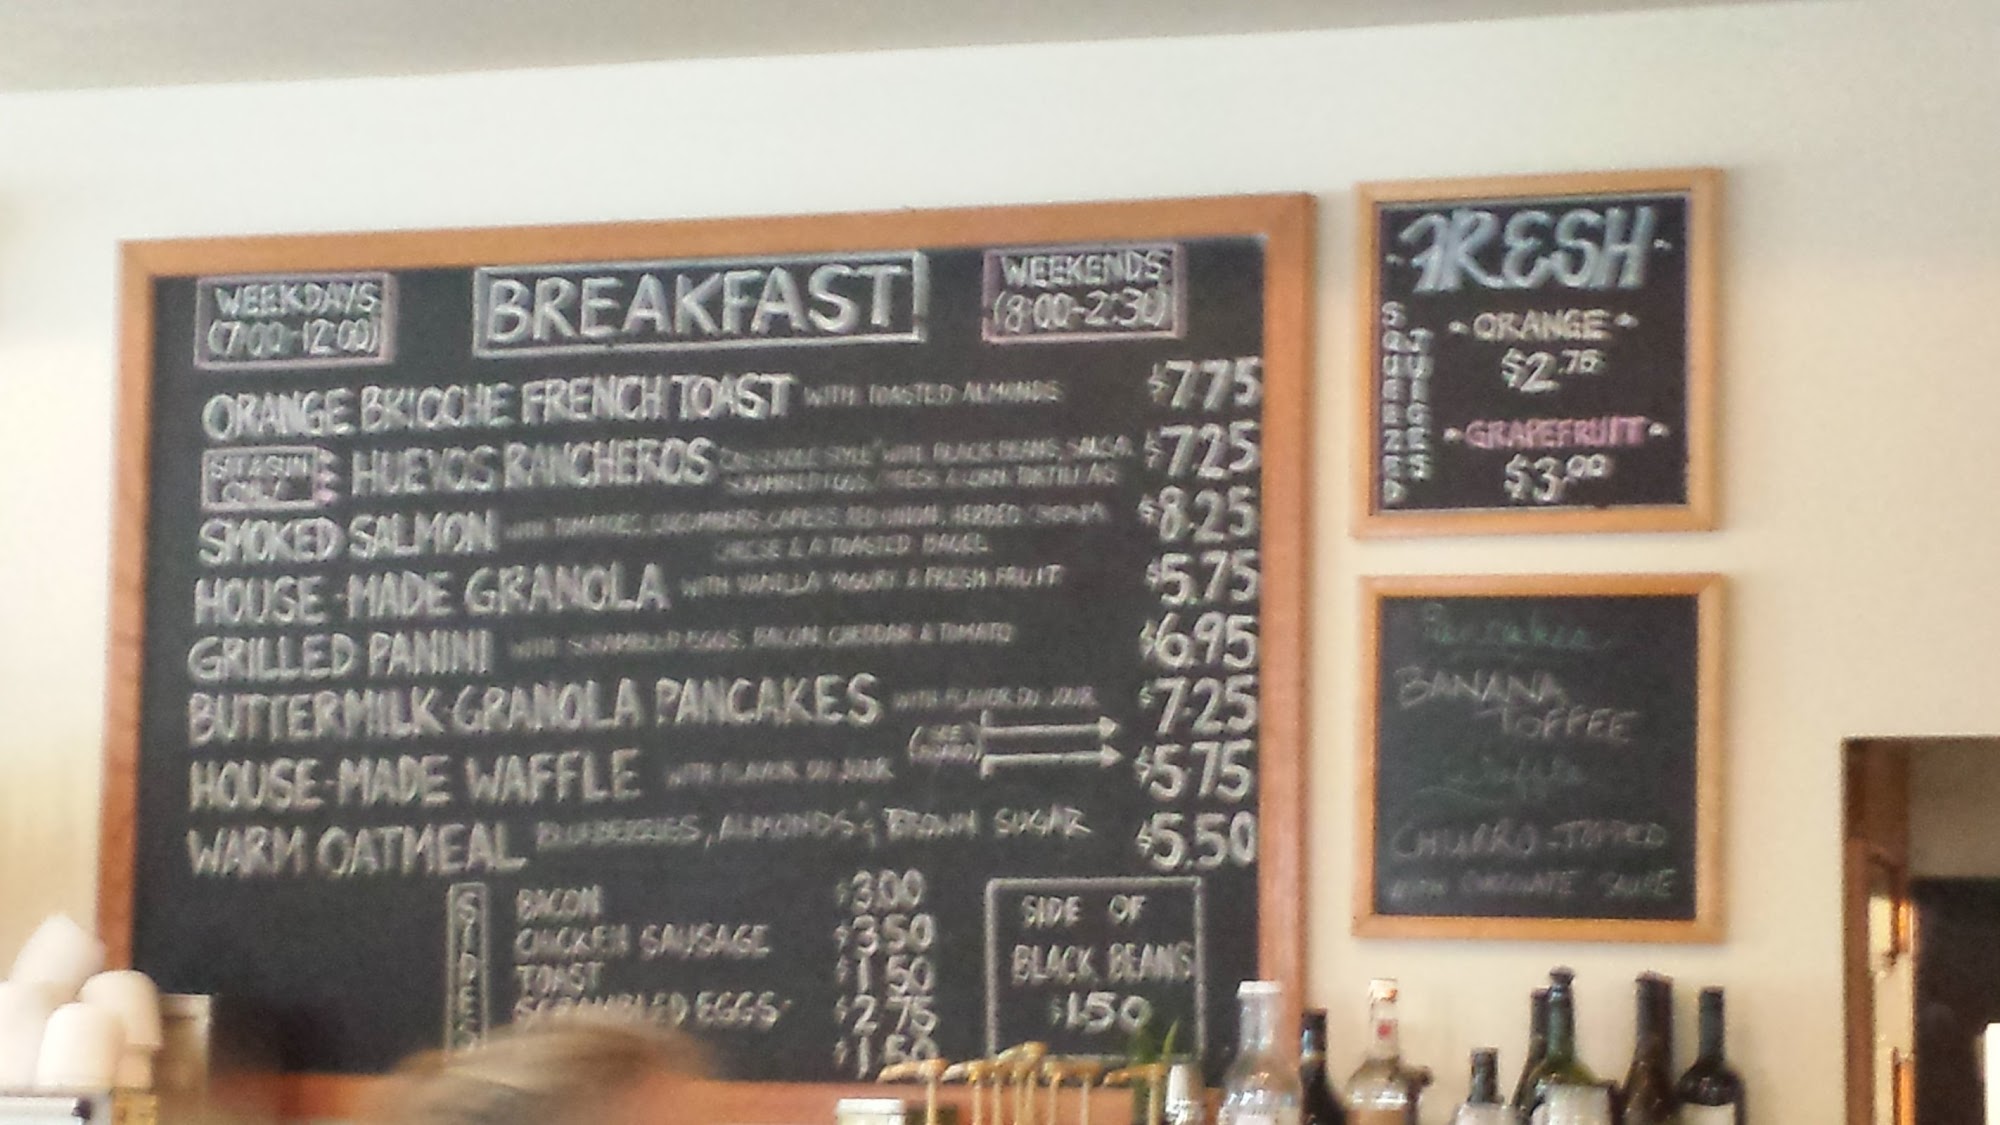 WEEKDAYS
(7:00-12:00)
BREAKFAST
WEEKENDS
(8:00-2:30)
ORANGE BRIOCHE FRENCH TOAST WITH TOASTED ALMONDS $7.75
SAT & SUN
ONLY
HUEVOS RANCHEROS "CASSEROLE STYLE" WITH BLACK BEANS, SALSA, $7.25
SCRAMBLED EGGS, CHEESE & CORN TORTILLAS
SMOKED SALMON WITH TOMATOES, CUCUMBERS, CAPERS, RED ONION, HERBED CREAM $8.25
CHEESE & A TOASTED BAGEL
HOUSE-MADE GRANOLA WITH VANILLA YOGURT & FRESH FRUIT $5.75
GRILLED PANINI WITH SCRAMBLED EGGS, BACON, CHEDDAR & TOMATO $6.95
BUTTERMILK-GRANOLA PANCAKES WITH FLAVOR DU JOUR $7.25
(SEE
BOARD)
HOUSE-MADE WAFFLE WITH FLAVOR DU JOUR $5.75
WARM OATMEAL BLUEBERRIES, ALMONDS & BROWN SUGAR $5.50
SIDES
BACON $3.00
CHICKEN SAUSAGE $3.50
TOAST $1.50
SCRAMBLED EGGS $2.75
$1.50
SIDE OF
BLACK BEANS
$1.50
FRESH
SQUEEZED
JUICES
ORANGE
$2.75
GRAPEFRUIT
$3.00
Pancakes
BANANA
TOFFEE
Waffle
CHURRO-TOPPED
WITH CHOCOLATE SAUCE